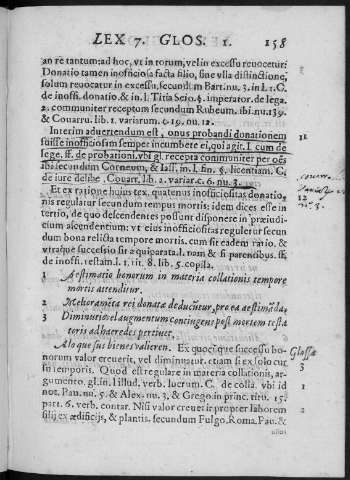 LEX 7. GLOS. 1. 158
an re tantum: ad hoc, vt in totum, vel in excessu reuocetur:
Donatio tamen inofficiosa facta filio, sine vlla distinctione,
solum reuocatur in excessu, secundum Bart. nu. 3. in l. 1. C.
de inoffi. donatio. & in l. Titia Seio. §. imperator. de lega.
2. communiter receptom secundum Rubeum. ibi. nu. 139.
& Couarru. lib. 1. variarum. c. 19. nu. 12.
Interim aduertendum est, onus probandi donationem
suisse inofficiosam semper incumbere ei, qui agit. l. cum de
lege. ff. de probationi. vbi gl. recepta communiter per oēs
ibi secundum Corneum, & Iass. in l. fin. §. licentiam. C.
de iure delibe. Couarr. lib. 2. variar. c. 6. nu. 3.
Et ex ratione huius tex. quatenus inofficiositas donatio-
nis regulatur secundum tempus mortis: idem dices esse in
tertio, de quo descendentes possunt disponere in præiudi-
cium ascendentium: vt eius inofficiositas reguletur secun
dum bona relicta tempore mortis. cum sit eadem ratio. &
vtraque successio sit æquiparata. l. nam & si parentibus. ff.
de inoffi. testam. l. 1. tit. 8. lib. 5. copila.
1 Aestimatio bonorum in materia collationis tempore
mortis attenditur.
2 Melioramēta rei donatæ deducūtur, pro ea aestimāda,
3 Diminutio vel augmentum contingens post mortem testa
toris ad hæredes pertinet.
A lo que sus bienes valieren. Ex quocūque successu bo-
norum valor creuerit, vel diminuatur. etiam si ex solo cur
su temporis. Quod est regulare in materia collationis, ar-
gumento. gl. in l. illud. verb. lucrum. C. de colla. vbi id
not. Pau. nu. 5. & Alex. nu. 3. & Grego. in princ. titu. 15.
part. 6. verb. contar. Nisi valor creuerit propter laborem
filij ex ædificijs, & plantis. secundum Fulgo. Roma. Pau. &
11
12
Glossa
3
1
2